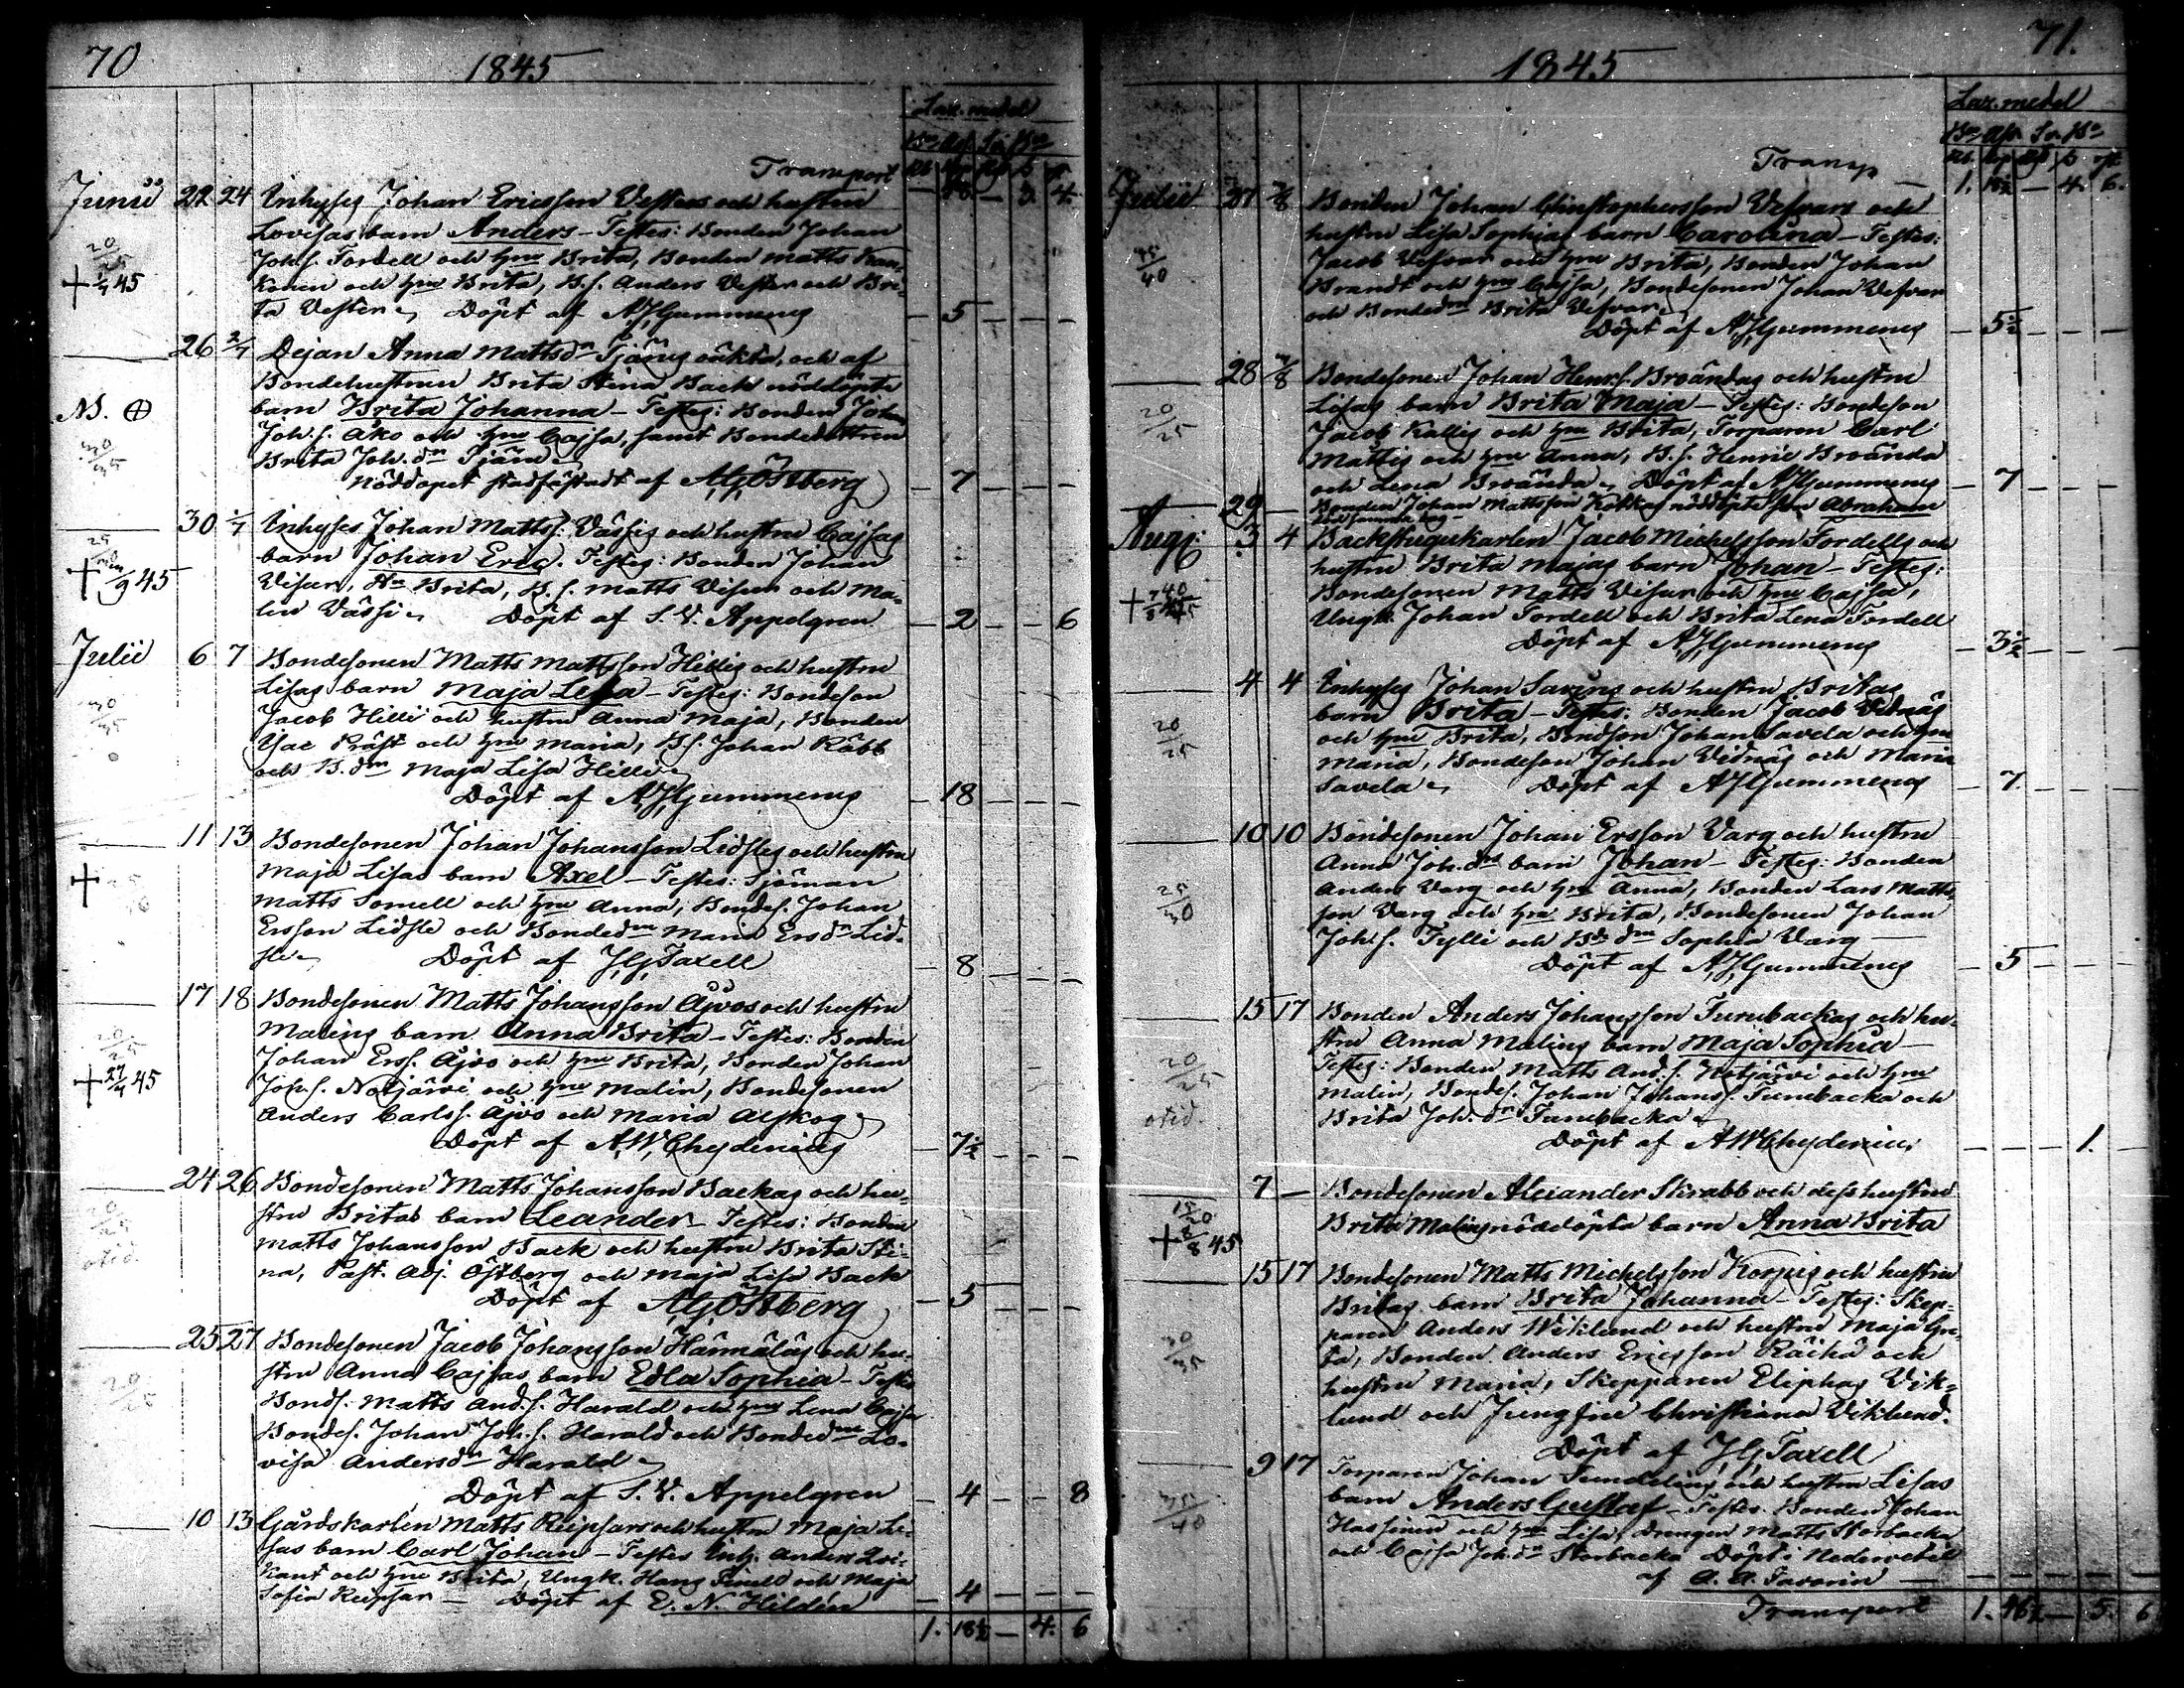 70
1845
Laz. medel
Transport
Junii 22 24 Inhyses Johan Ericsson Vesters och hustru — 18. — 3. 4.
20/25
Lovisas barn Anders — Testes: Bonden Johan
Joh.s. Fordell och hru Brita, Bonden Matts Kan-
+ 1/7 45
konen och hru Brita, B.s. Anders Vester och Bri-
ta Vester. Döpt af AJGummerus — 5 — — —
26 2/7 Pigan Anna Mattsdr Tjärus oäkta, och af
Bondehustrun Brita Stina Back nöddöpta
NB. ⊕
barn Brita Johanna — Testes: Bonden Johan
30/35
Joh.s. Åko och hru Cajsa, samt Bondedottren
Brita Joh.dr Tjäru
Nöddopet stadfästadt af AGÖstberg — 7 — — —
30 1/7 Inhyses Johan Matts: Vässis och hustru Cajsas
25/30
barn Johan Eric. Testes: Bonden Johan
+ /9 45
Visur, Hu Brita, B.s. Matts Visur och Ma-
lin Vässi. Döpt af S.V. Appelgren — 2 — — 6
Julii 6 7 Bondesonen Matts Mattsson Hillis och hustru
Lisas barn Maja Lisa — Testes: Bondeson
30/35
Jacob Hilli och hustru Anna Maja, Bonden
Isac Präst och hru Maria, B.S. Johan Käbb
och B.dr Maja Lisa Hilli
Döpt af AJGummerus — 18 — — —
11 13 Bondesonen Johan Johansson Lidstes och hustru
+
Maja Lisas barn Axel — Testes: Sjöman
Matts Somell och hru Anna, Bondes. Johan
Ersson Lidste och Bondedr Maria Ersdr Lid-
ste. Döpt af JGTaxell — 8 — — —
17 18 Bondesonen Matts Johansson Åjvos och hustru
Malins barn Anna Brita — Testes: Bonden
20/25
Johan Erss. Åjvo och hru Brita, Bonden Johan
+ 27/7 45
Joh.s. Notjärvi och hru Malin, Bondesonen
Anders Carlss. Åjvo och Maria Alskog
Döpt af AWChydenius — 7½ — — —
24 26 Bondesonen Matts Johansson Backas och hu-
20/25
stru Britas barn Leander — Testes: Bonden
Matts Johansson Back och hustru Brita Sti-
otid.
na, Past. Adj. Östberg och Maja Lisa Back
Döpt af AGÖstberg — 5 — — —
25 27 Bondesonen Jacob Johansson Hännäläs och hu-
stru Anna Cajsas barn Edla Sophia — Testes
20/25
Bonds. Matts And.s. Harald och hru Lena Cajsa
Bondes. Johan Joh.s. Harald och Bondedr Lo-
visa Andersdr Harald
Döpt af S.V. Appelgren — 4 — — 8
10 13 Gårdskarlen Matts Reipsars och hustru Maja Li-
sas barn Carl Johan — Testes Inh. Anders Qvi-
kant och hru Brita, Ungk. Hans och Maja
Sofia Reipsar — Döpt af E.N. Hildén — 4 — — —
1. 18½ — 4. 6
71.
1845
Laz. medel
Transp — 1. 18½ — 4. 6.
Julii 27 2/8 Bonden Johan Christophersson Vefvars och
45/40
hustru Lisa Sophias barn Carolina — Testes:
Jacob Vefvar och hru Brita, Bonden Johan
Brandt och hru Cajsa, Bondesonen Johan Vefvar
och Bondedr Brita Vefvar
Döpt af AJGummerus — 5½ — — —
28 /8 Bondesonen Johan Henr.s. Broändas och hustru
20/25
Lisas barn Brita Maja — Testes: Bondeson
Jacob Kallis och hru Brita, Torparen Carl
Mattis och hru Anna, B.s. Henric Broända
och Lena Broända. Döpt af AJGummerus — 7 — — —
29 — Bonden Johan Mattsson Kotkas nöddöpte son Abraham
Aug: 3 4 Backstugukarlen Jacob Michelsson Fordells och
hustru Brita Majas barn Johan — Testes:
Bondesonen Matts Visur och hru Cajsa,
Ungk. Johan Fordell och Brita Lena Fordell
Döpt af AJGummerus — 3½ — — —
4 4 Inhyses Johan Savelas och hustru Britas
20/25
barn Brita — Testes: Bonden Jacob Vidnäs
och hru Brita, Bondson Johan Savela och hru
Maria, Bondeson Johan Vidnäs och Maria
Savela. Döpt af AJGummerus — 7. — — —
10 10 Bondesonen Johan Ersson Varg och hustru
Anna Joh.drs barn Johan — Testes: Bonden
25/30
Anders Varg och hru Anna, Bonden Lars Matts-
son Varg och hru Brita, Bondesonen Johan
Joh.s. Tylli och Bdr Sophia Varg —
Döpt af AJGummerus — 5 — — —
15 17 Bonden Anders Johansson Furubackas och hu-
stru Anna Malins barn Maja Sophia —
20/25
Testes: Bonden Matts And.s. Notjärvi och hru
Malin, Bondes. Johan Johans. Furubacka och
otid.
Brita Joh.dr Furubacka
Döpt af AWChydenius — — — 1. —
7 — Bondesonen Alexander Skrabb och dess hustru
15/20
Brita Malins nöddöpta barn Anna Brita
+ 8/8 45
15 17 Bondesonen Matts Michelsson Korpis och hustru
Britas barn Brita Johanna — Testes: Skep-
30/35
paren Anders Wiklund och hustru Maja Gre-
ta, Bonden Anders Ericsson Räihä och
hustru Maria, Skepparen Eliphas Vik-
lund och Jungfru Christiana Viklund.
Döpt af JGTaxell
9 17 Torparen Johan Sundelins och hustru Lisas
35/40
barn Anders Gustaf — Testes. Bonden Johan
Hassinen och hru Lisa, Drengen Matts Storbacka
och Cajsa Joh.dr Storbacka Döpt i Nedervetil
af A.A. Favorin — — — — —
Transport 1. 46½ — 5. 6